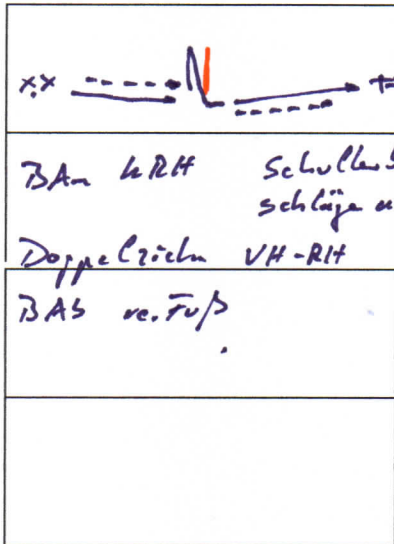 BAn hRH Schulter
schläge
Doppelziehn VH-RH
BAS re. Fuß